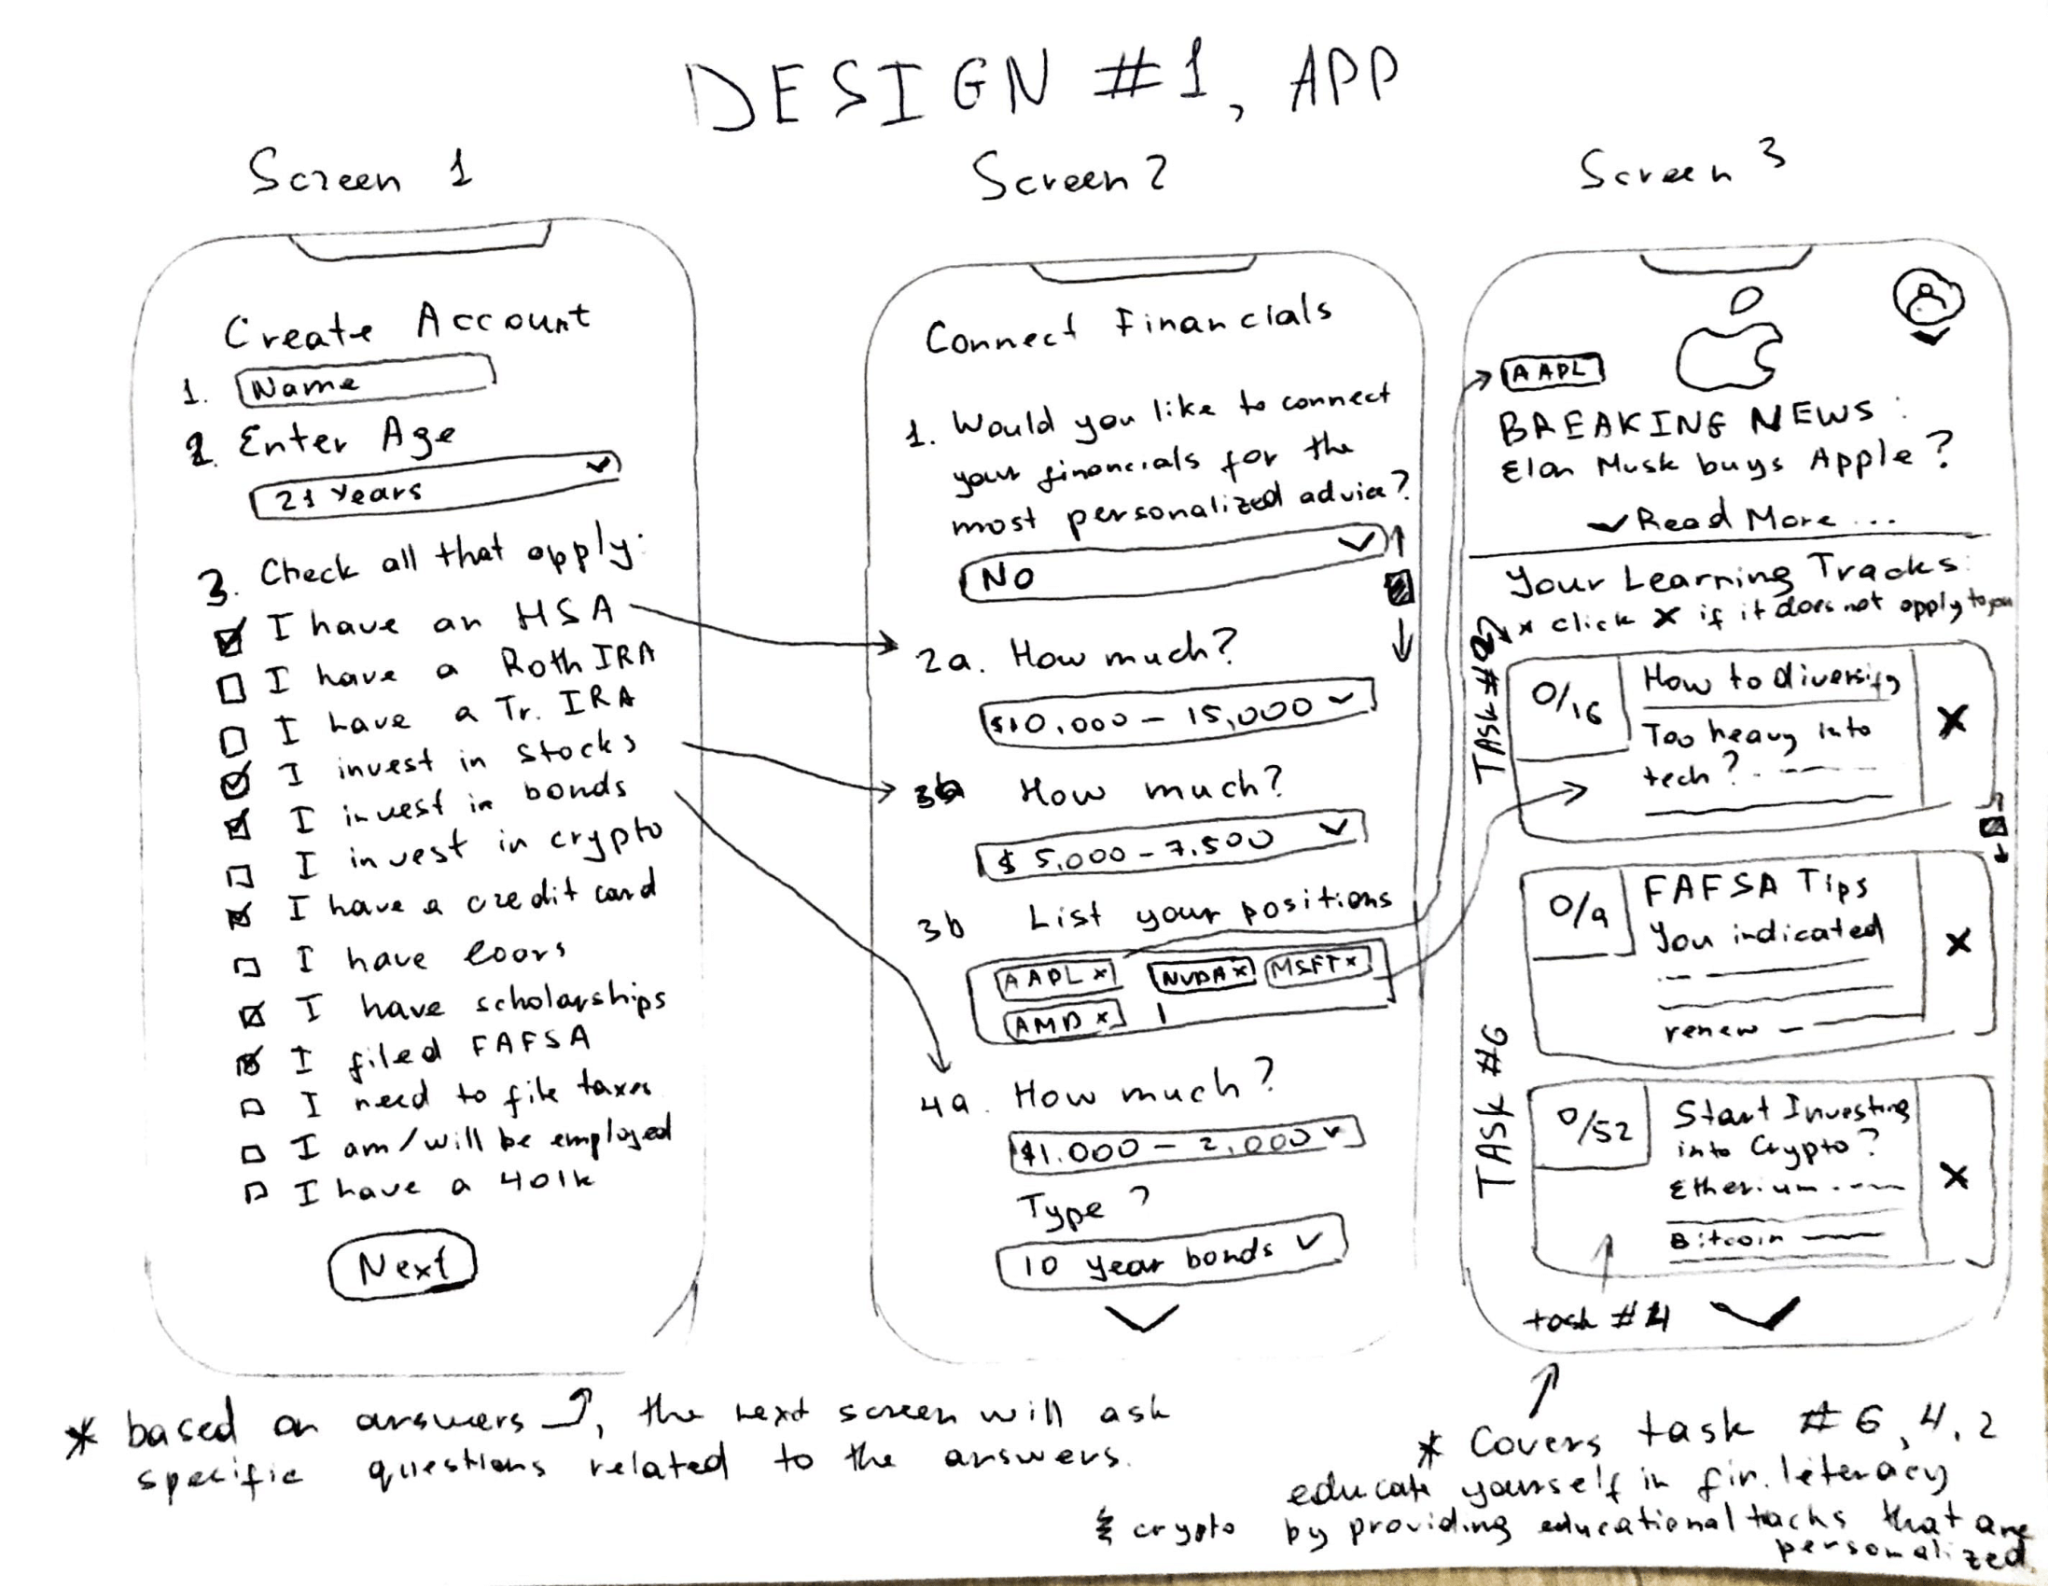 DESIGN #1, APP
Screen 1
Create Account
1. Name
2. Enter Age
21 years
3. Check all that apply:
I have an HSA
I have a Roth IRA
I have a Tr. IRA
I invest in stocks
I invest in bonds
I invest in crypto
I have a credit card
I have loans
I have scholarships
I filed FAFSA
I need to file taxes
I am/will be employed
I have a 401k
Next
* based on answers, the next screen will ask
specific questions related to the answers.
Screen 2
Connect Financials
1. Would you like to connect
your financials for the
most personalized advice?
No
2a. How much?
$10,000 - 15,000
How much?
$5,000 - 7,500
3b List your positions
AAPL x NVDA x MSFT x
AMD x
4a. How much?
$1.000 - 2,000
Type?
10 year bonds
Screen 3
AAPL
BREAKING NEWS:
Elon Musk buys Apple?
Read More...
Your Learning Tracks:
* click X if it does not apply to you
Task #2
0/16
How to diversify
Too heavy into
tech?
X
Task #6
0/9
FAFSA Tips
You indicated
renew
X
0/52
Start Investing
into Crypto?
Etherium
Bitcoin
X
task #4
* Covers task #6, 4, 2
educate yourself in fin. literacy
& crypto by providing educational tacks that are
personalized